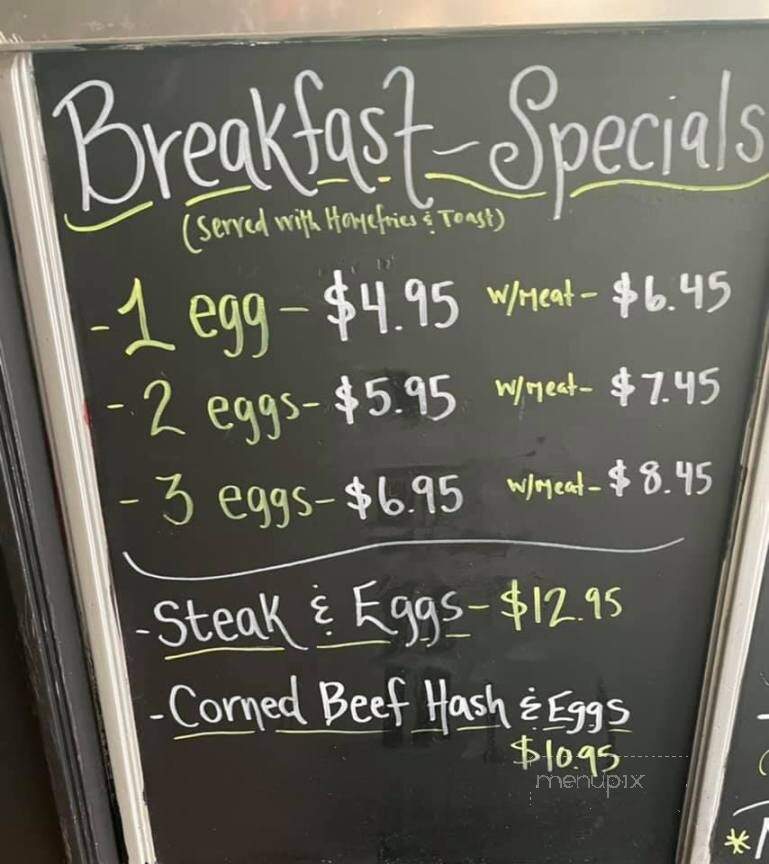 Breakfast - Specials
(Served with Homefries & Toast)
- 1 egg - $4.95 w/Meat - $6.45
- 2 eggs - $5.95 w/Meat - $7.45
- 3 eggs - $6.95 w/Meat - $8.45
- Steak & Eggs - $12.95
- Corned Beef Hash & Eggs
$10.95
menupix